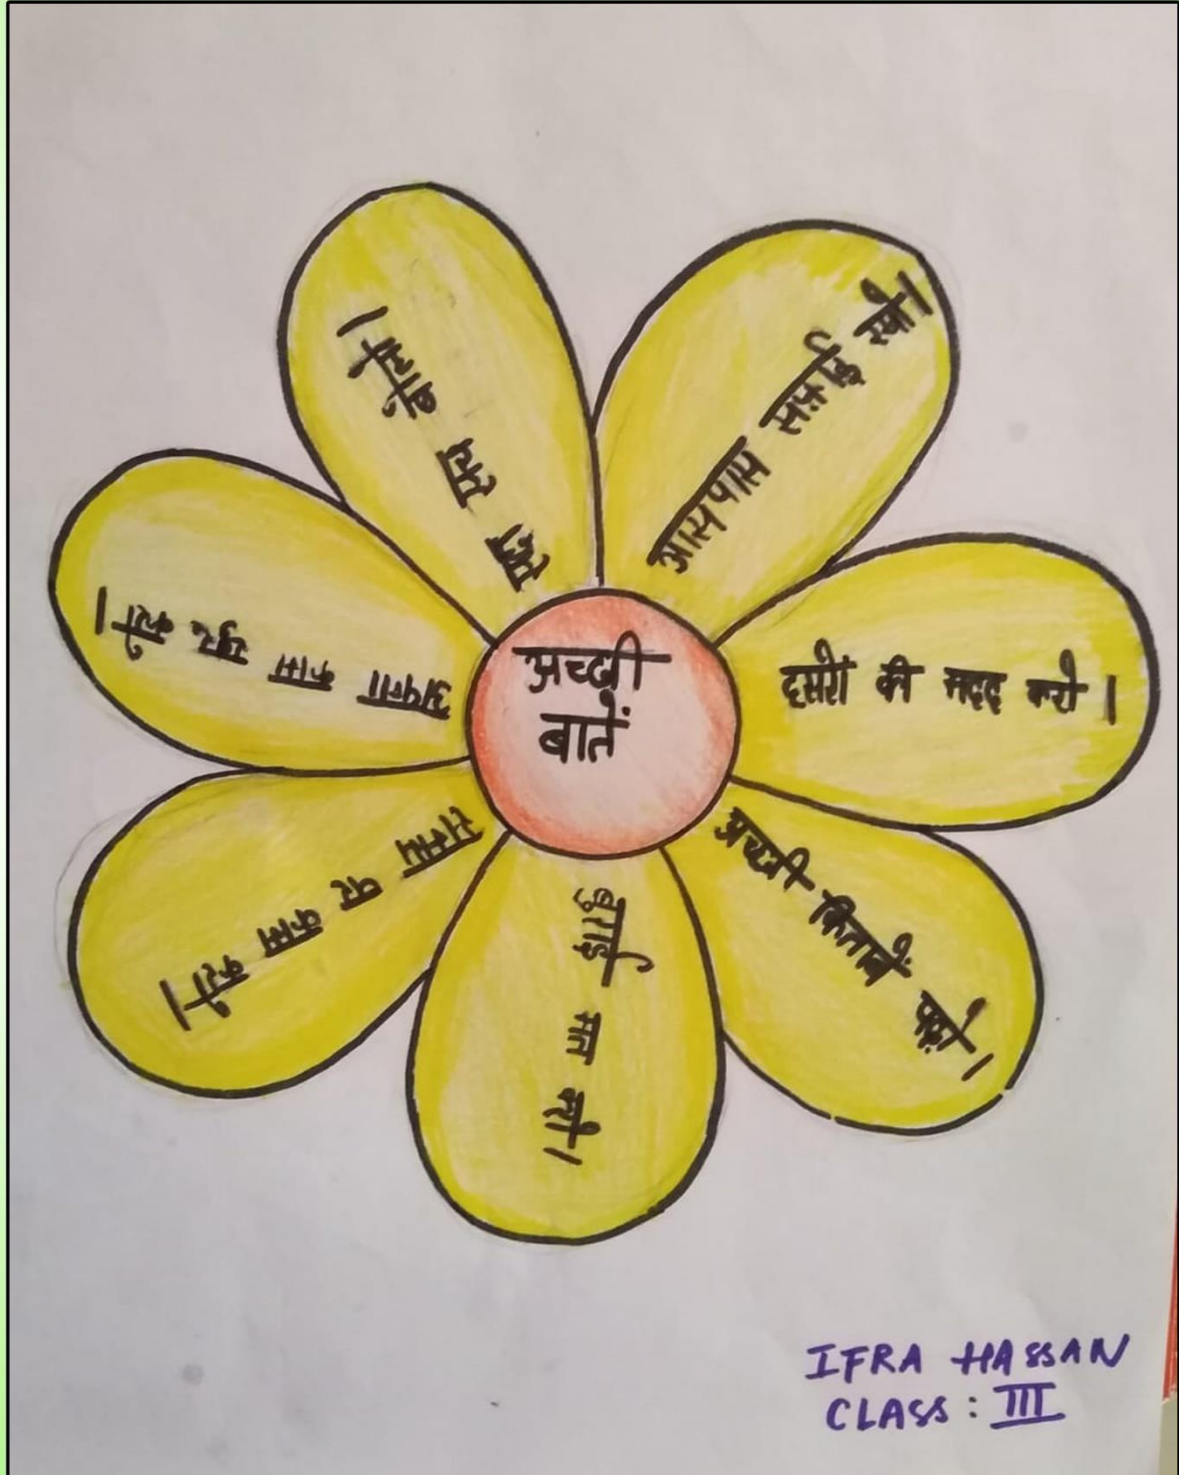 अच्छी
बातें
सदा सच बोलो।
आसपास सफ़ाई रखो।
दूसरों की मदद करो।
अच्छी किताबें पढ़ो।
बुराई मत करो।
समय पर काम करो।
अपना काम खुद करो।
IFRA HASSAN
CLASS: III